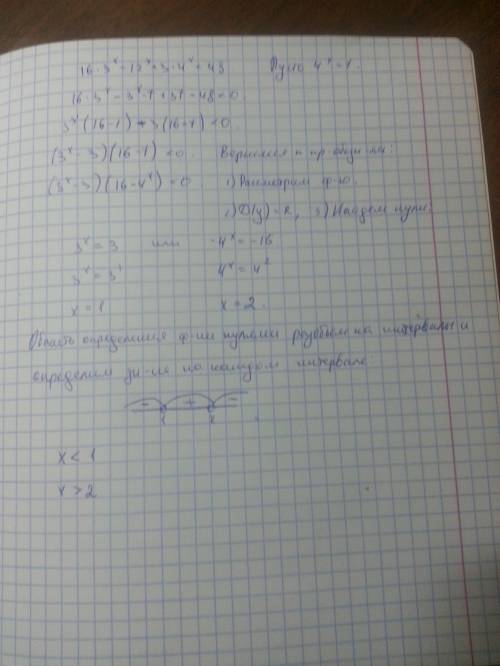 16·3ˣ-12ˣ+3·4ˣ<48 Пусть 4ˣ=t.
16·3ˣ-3ˣ·t+3t-48<0
3ˣ(16-t)-3(16-t)<0
(3ˣ-3)(16-t)<0 Вернемся к
(3ˣ-3)(16-4ˣ)<0 1) Рассмотрим ф-ю.
2) D(y)=R, 3) Найдем нули.
3ˣ=3 или -4ˣ=-16
3ˣ=3¹ 4ˣ=4²
x=1 x=2.
Область определения ф-ии нулями разобьем на интервалы и
определим зн-ие на каждом интервале
- + -
1 2
x<1
x>2